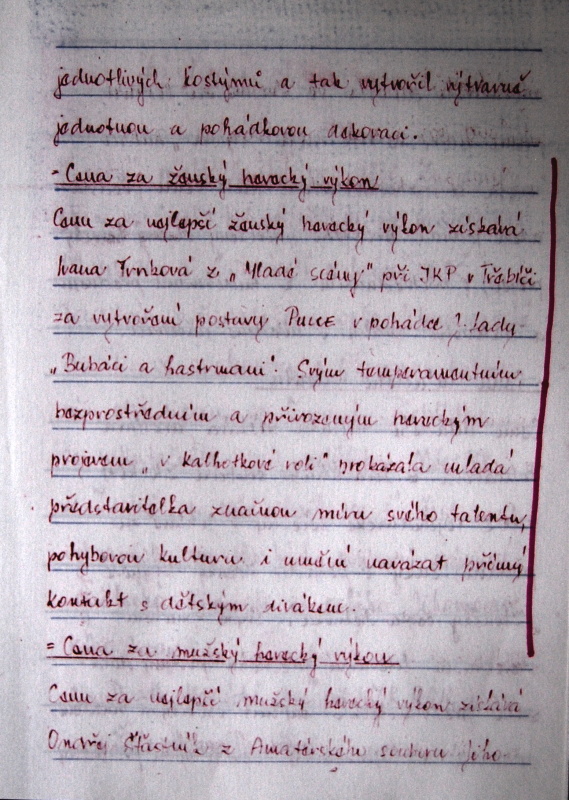 jednotlivých kostýmů a tak vytvořil výtvarně
jednotnou a pohádkovou dekoraci.
- Cena za ženský herecký výkon
Cenu za nejlepší ženský herecký výkon získává
Ivana Trnková z „Mladé scény" při JKP v Třebíči
za vytvoření postavy Pulce v pohádce J. Lady
„Bubáci a hastrmani". Svým temperamentním,
bezprostředním a přirozeným hereckým
projevem „v kalhotkové roli" prokázala mladá
představitelka značnou míru svého talentu,
pohybovou kulturu i umění navázat přímý
kontakt s dětským divákem.
= Cena za mužský herecký výkon
Cenu za nejlepší mužský herecký výkon získává
Ondřej Šťastník z Amatérského souboru